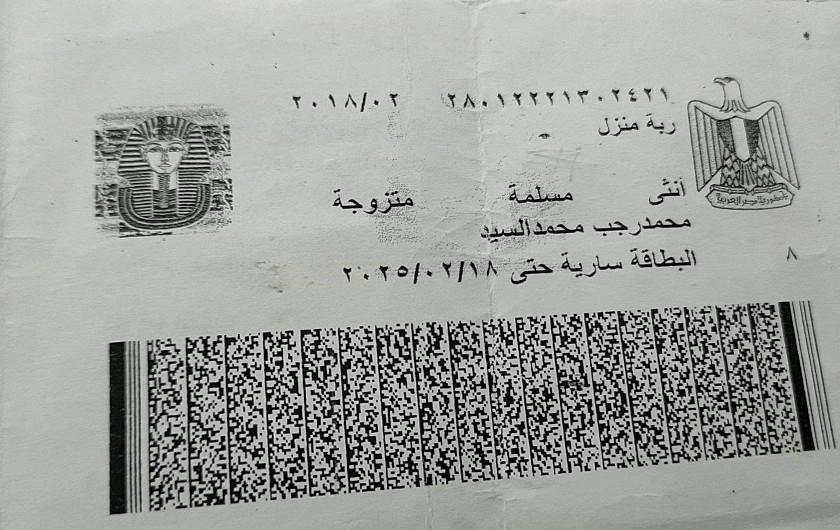 ٢٨٠١٢٢٢١٣٠٢٤٢١ ٢٠١٨/٠٢
ربة منزل
أنثى مسلمة متزوجة
محمدرجب محمدالسيد
البطاقة سارية حتى ٢٠٢٥/٠٢/١٨
٨
جمهورية مصر العربية